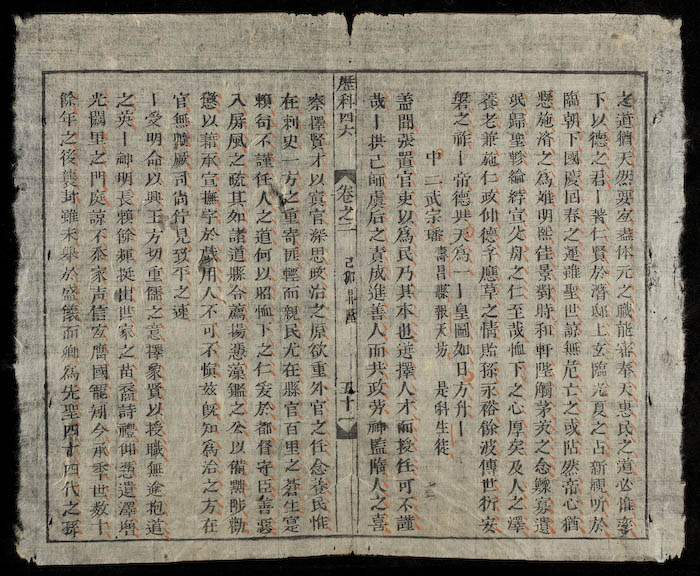 之道猶天然要盡体元之職能審奉天惠民之道必惟
下以德之君｜著仁賢於潛邸上玄臨光夏之占新視听於
臨朝下國慶回春之運雖聖世諒無危亡之或阽然帝心猶
懸施濟之為难明熙佳景對時和軒陛觸茅茨之念鰥寡遺
氓歸聖軫綸綍宣父房之仁至哉恤下之心厚矣及人之澤
養老兼施仁政仰德孚應草之情貽孫永裕餘波傳世衍安
磐之祚｜帝德與天為一｜皇圖如日方升｜
中二武宗璠 壽昌縣報天坊 是科生徒
盖聞張置官吏以為民乃其本也选擇人才而授任可不謹
哉｜拱己師虞后之責成進善人而共政劳神監隋人之喜
歷科四六 卷之二 己卯 五十一
察擇賢才以寘官深思政治之原欲重外官之任念养民惟
在刺史一方之重寄匪輕而親民尤在縣官百里之蒼生寔
頼句不謹任人之道何以昭恤下之仁爰於都督守臣善惡
入屏風之疏其如諸道縣令薦揚憑藻鑑之公以備黜陟勸
懲以藉承宣撫字於戯用人不可不慎玆既知為治之方在
官無曠厥司尚佇見致平之速
｜愛明命以興王方切重儒之意擇象賢以授職無逾抱道
之英｜神明長頼餘輝挺出世家之苗裔詩禮仰憑遺澤增
光闕里之門庭諒不忝家声信宜膺國寵矧今承季世数十
餘年之後襲封雖未舉於盛儀而卿為先聖四十四代之孫